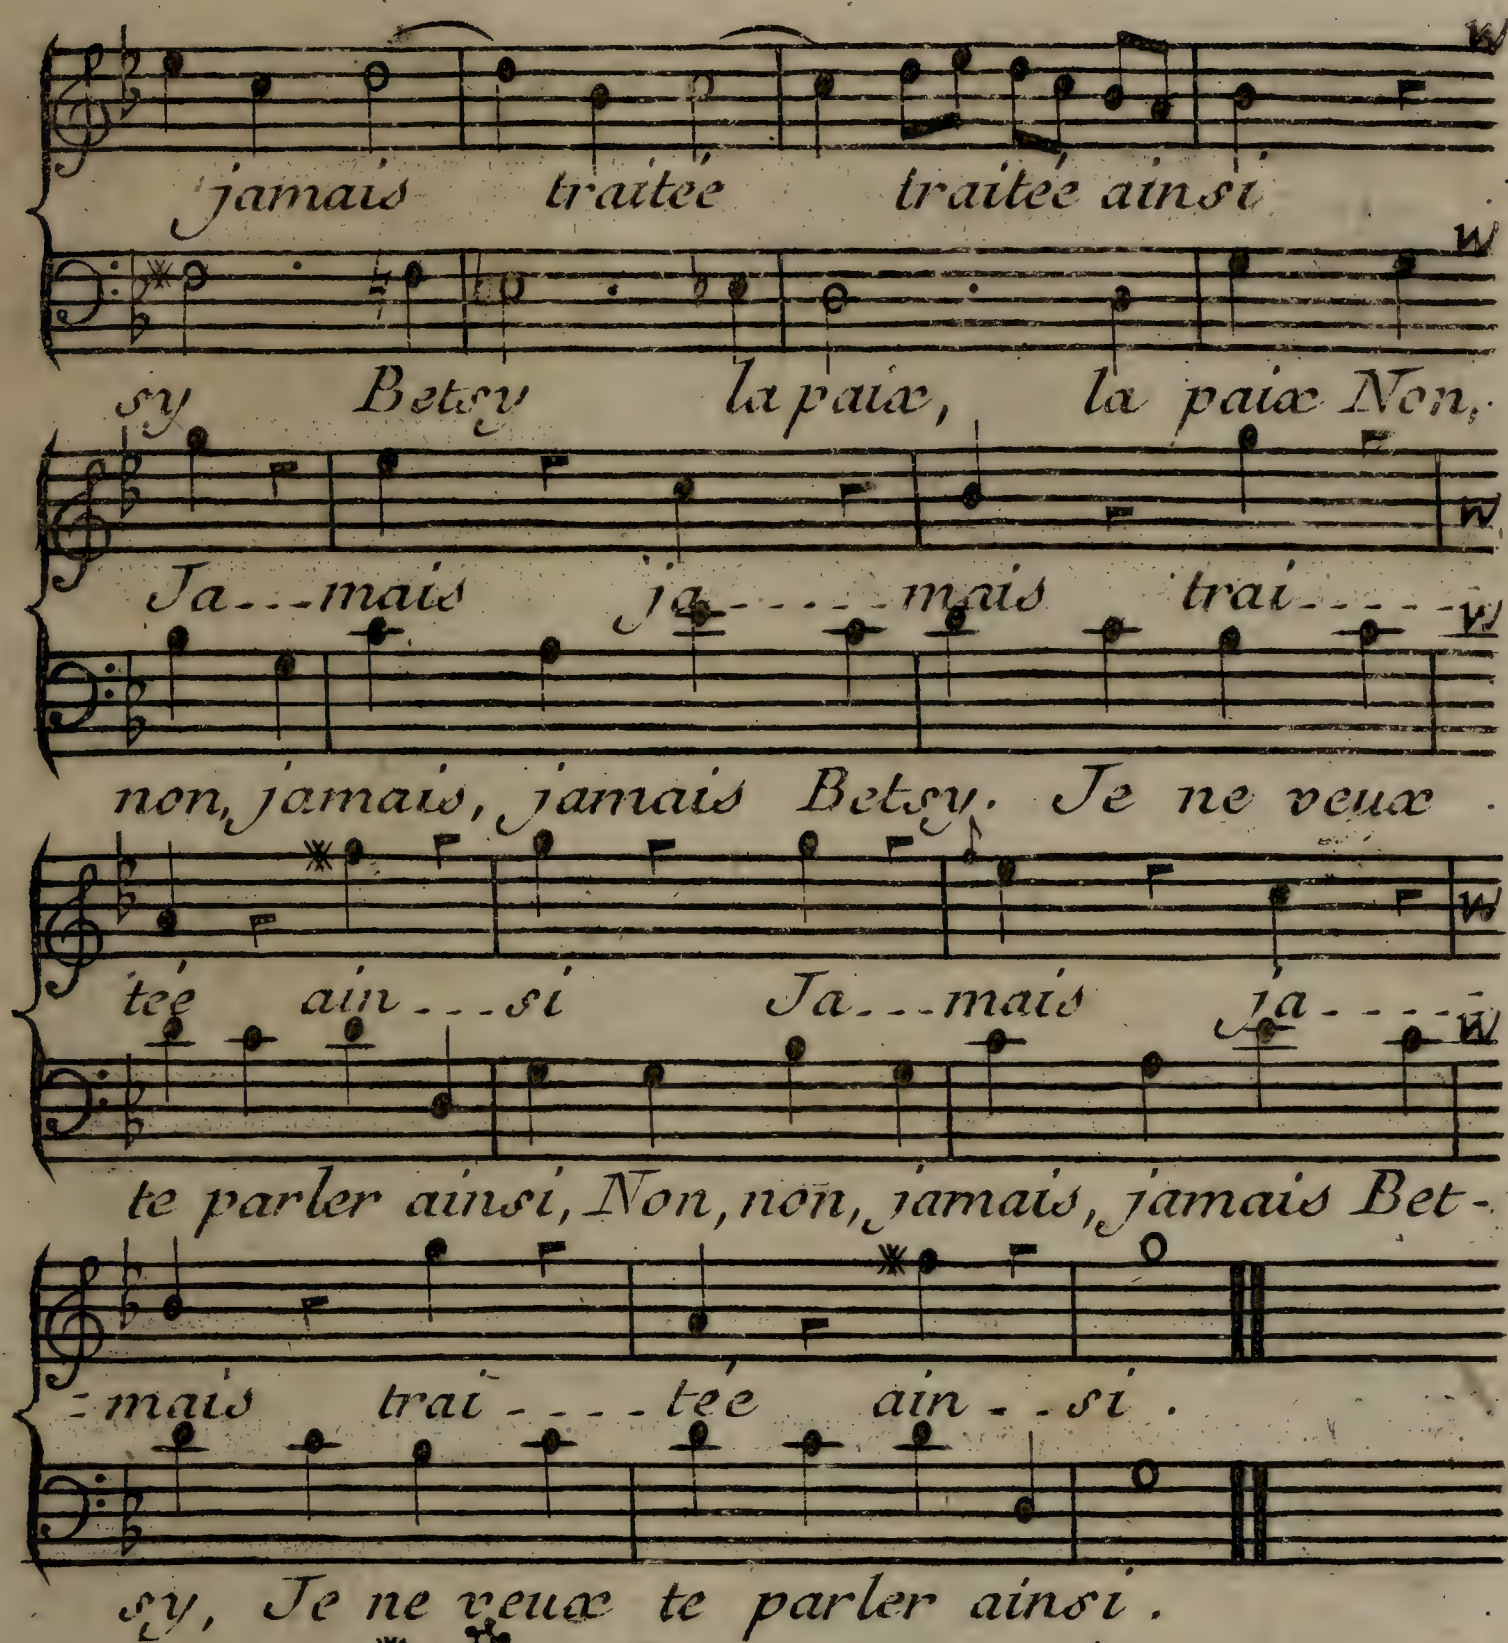 jamais traitée traitée ainsi
sy Betsy la paix, la paix Non,
Ja...mais ja......mais trai......
non, jamais, jamais Betsy. Je ne veux
tée ain...si Ja...mais ja.....
te parler ainsi, Non, non, jamais, jamais Bet-
=mais trai....tée ain..si.
sy, Je ne veux te parler ainsi.